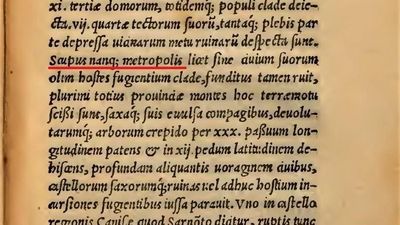 xi. tertiæ domorum, totidemq; populi dedicta
da. vij. quartæ tectorum suorũ, tantaq; plebis par
te depressa uianarum metu ruinarũ despecta sunt.
Scupus nanq; metropolis licet sine ciuium suorum
olim hostes fugientium clade, funditus tamen ruit,
plurimi totius prouinciæ montes hoc terræmotu
scissi sunt, saxaq; suis euulsa compagibus, deuolu-
tarumq; arborum crepido per xxx. paßuum lon-
gitudinem patens & in xij. pedum latitudinem de-
hiscens, profundam aliquantis uoraginem ciuibus,
castellorum saxorumq; ruinas uel adhuc hostium in-
cursiones fugientibus iussa parauit. Vno in castello
regionis Canisæ quod Sarnõto dicitur, ruptis tunc